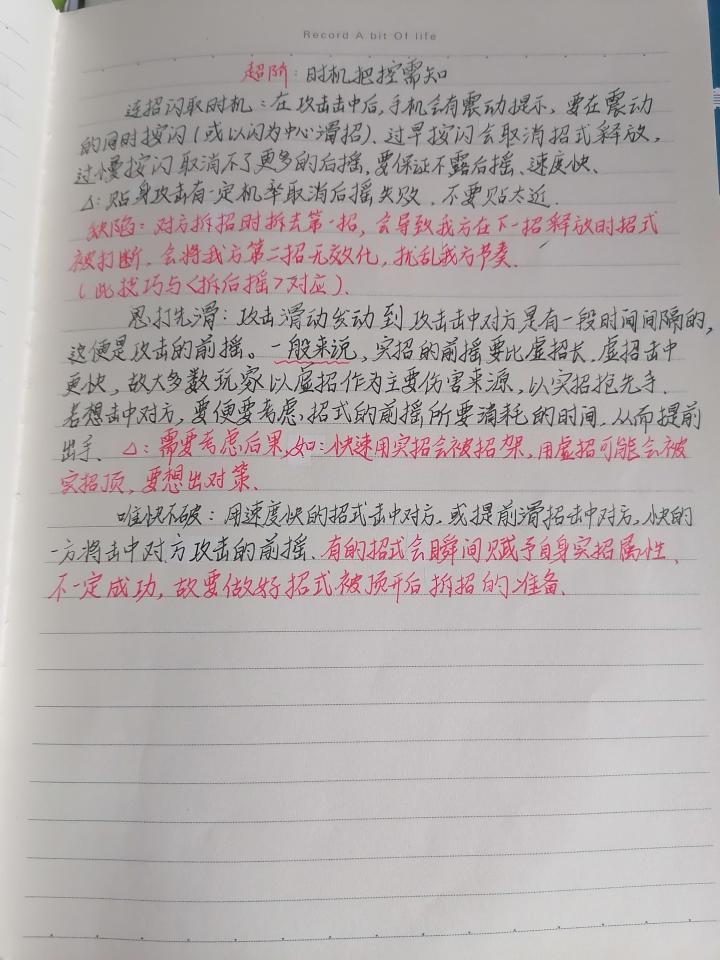 Record A bit Of life
超阶：时机把控需知
连招闪取时机：在攻击击中后，手机会有震动提示，要在震动
的同时按闪（或以闪为中心滑招）。过早按闪会取消招式释放，
过慢按闪取消不了更多的后摇，要保证不露后摇、速度快、
△：贴身攻击有一定机率取消后摇失败，不要贴太近.
缺陷：对方拆招时拆去第一招，会导致我方在下一招释放时招式
被打断，会将我方第二招无效化，扰乱我方节奏.
（此技巧与<拆后摇>对应）.
思打先滑：攻击滑动发动到攻击击中对方是有一段时间间隔的，
这便是攻击的前摇。一般来说，实招的前摇要比虚招长，虚招击中
更快，故大多数玩家以虚招作为主要伤害来源，以实招抢先手.
若想击中对方，要便要考虑招式的前摇所要消耗的时间，从而提前
出手、△：需要考虑后果，如：快速用实招会被招架，用虚招可能会被
实招顶，要想出对策.
唯快不破：用速度快的招式击中对方，或提前滑招击中对方，快的
一方将击中对方攻击的前摇.有的招式会瞬间赋予自身实招属性，
不一定成功，故要做好招式被顶开后拆招的准备.